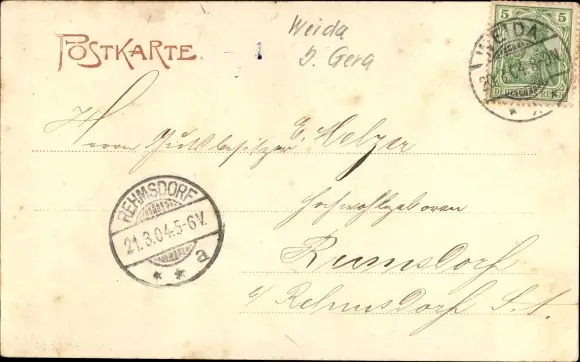 POSTKARTE.
Weida
b. Gera
5
WEIDA
DEUTSCHES REICH
Herrn Gutsbesitzer E. Melzer
Hochwohlgeboren
REHMSDORF
21.3.04.5-6V.
* * a
Rumsdorf
b/Rehmsdorf S.A.